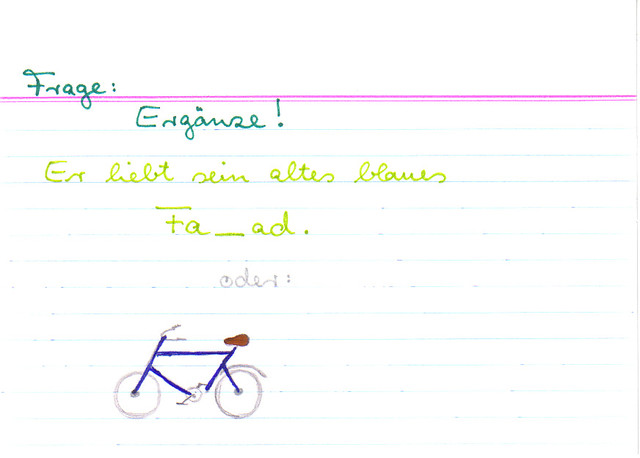 Frage:
Ergänze!
Er liebt sein altes blaues
Fa_ad.
oder: